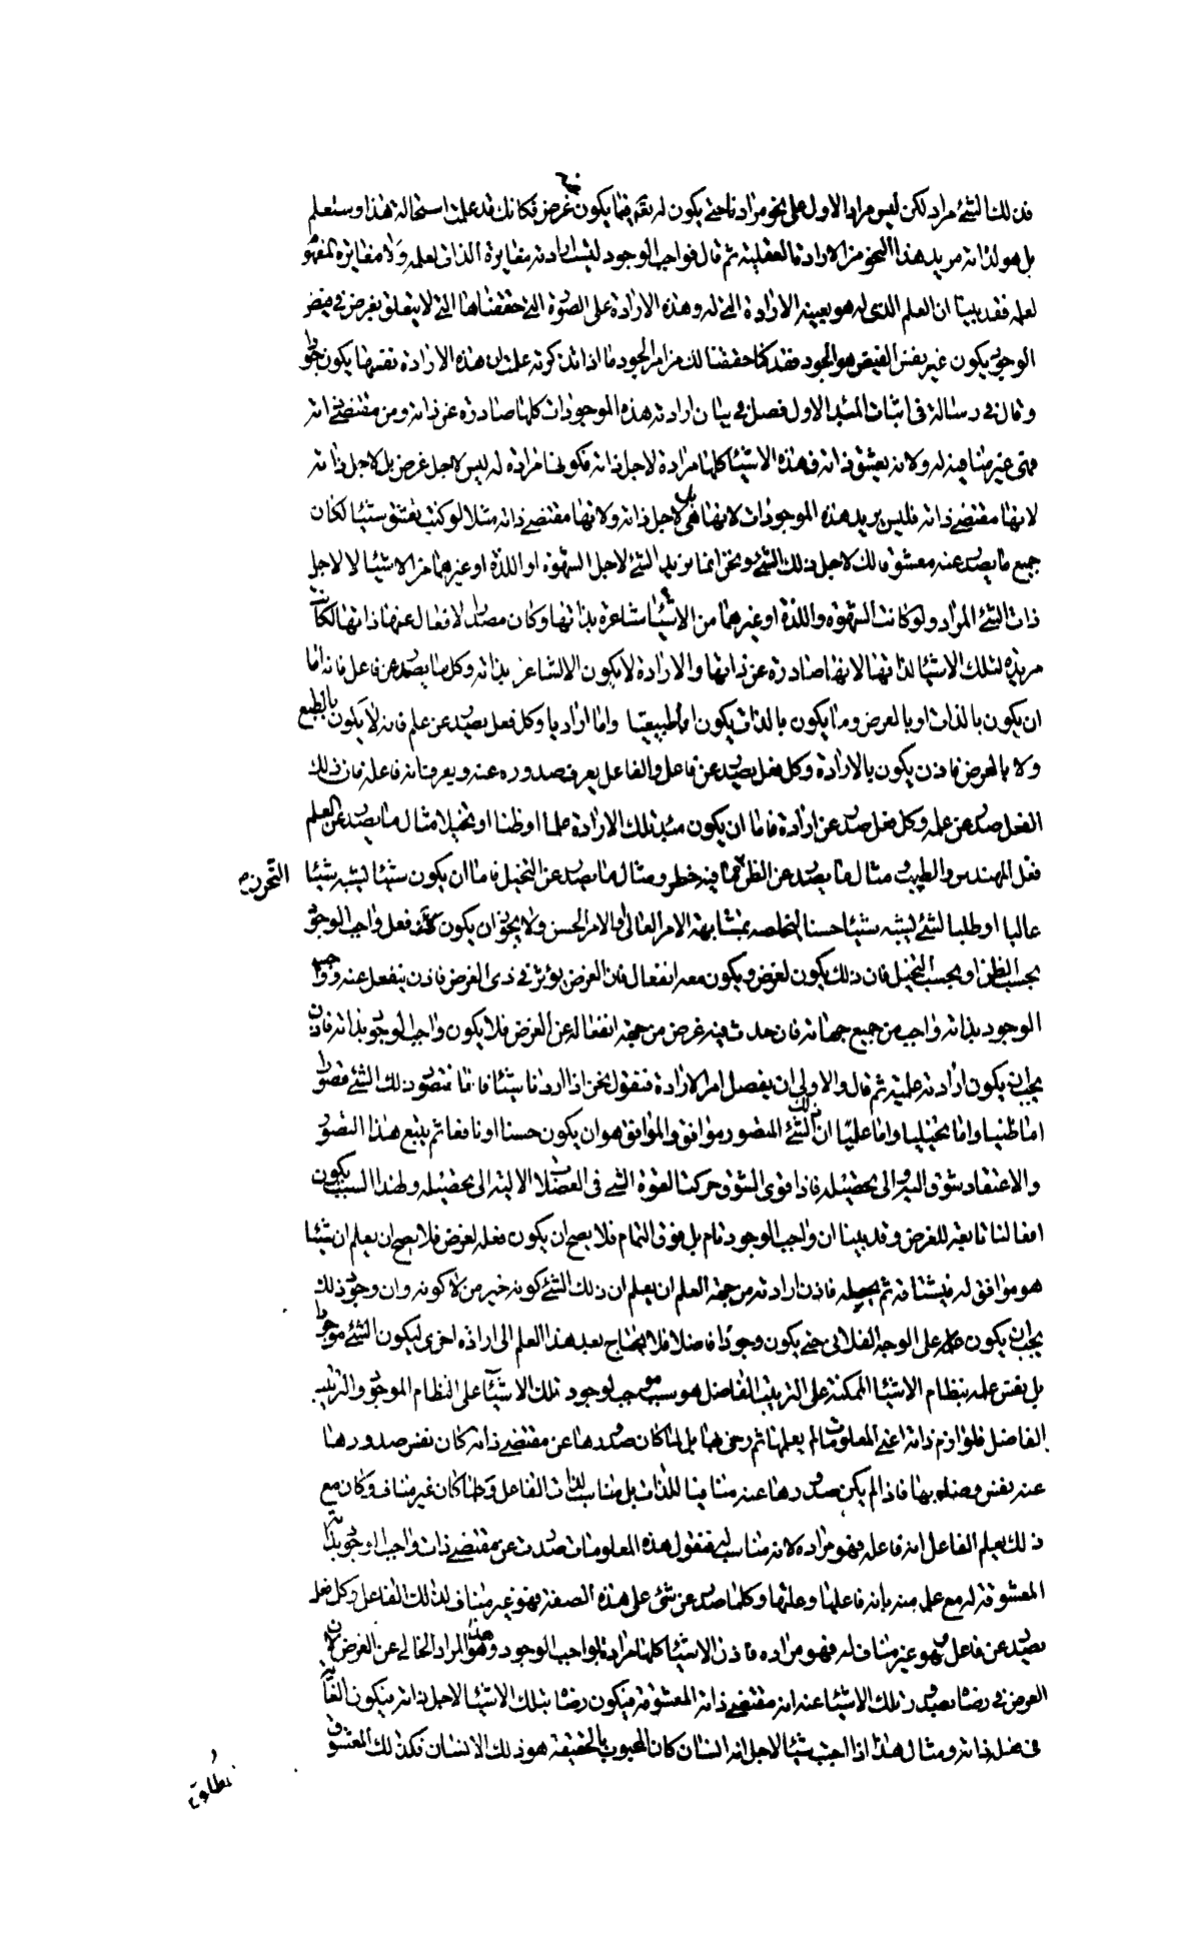 فذلك الشئ مراد لكن ليس مراد الاول على نحو مرادنا حتى يكون له نقص فيما يكون غرض فكانك قد علمت استحالة هذا وستعلم
بل هو لذاته مريد هذا النحو من الارادة العقلية ثم قال فواجب الوجود ليست ارادته مغايرة الذات لعلمه ولا مغايرة المفهوم
لعلمه فقد بينا ان العلم الذى له هو بعينه الارادة التى له وهذه الارادة على الصورة التى حققناها التى لا يتعلق بغرض فى فيض
الوجود يكون غير نفس الفيض هو الجود فقد كنا حققنا لك من امر الجود ما اذا تذكرته علمت ان هذه الارادة نفسها يكون جودا
وقال فى رسالة فى اثبات المبدء الاول فصل فى بيان ارادته هذه الموجودات كلها صادرة عن ذاته ومن مقتضى ذاته
فهى غير منافية له ولانه يعشق ذاته فهذه الاشياء كلها مرادة لاجل ذاته فكونها مرادة له ليس لاجل غرض بل لاجل ذاته
لانها مقتضى ذاته فليس يريد هذه الموجودات لانها هى بل لاجل ذاته ولانها مقتضى ذاته مثلا لو كنت تعشق شيئا لكان
جميع ما يصدر عنه معشوقا لك لاجل ذلك الشئ ونحن انما نريد الشئ لاجل الشهوة او اللذة او غيرهما من الاشياء لا لاجل
ذات الشئ المراد ولو كانت الشهوة واللذة او غيرهما من الاشياء شاعرة بذاتها وكان مصدر الافعال عنها ذاتها لكانت
مريدة لتلك الاشياء لذاتها لانها صادرة عن ذاتها والارادة لا يكون الا لشاعر بذاته وكل ما يصدر عن فاعل فانه اما
ان يكون بالذات او بالعرض وما يكون بالذات يكون اما طبيعيا واما اراديا وكل فعل يصدر عن علم فانه لا يكون بالطبع
ولا بالعرض فاذن يكون بالارادة وكل فعل يصدر عن فاعل والفاعل يعرف صدوره عنه ويعرف انه فاعله فان ذلك
الفعل صدر عن علمه وكل فعل صدر عن ارادة فاما ان يكون مبدء تلك الارادة علما او ظنا او تخيلا مثال ما يصدر عن العلم
فعل المهندس والطبيب مثال ما يصدر عن الظن التحرز مما فيه خطر ومثال ما يصدر عن التخيل فاما ان يكون شيئا يشبه شيئا
عاليا او طلبا لشئ يشبه شيئا حسنا لمشابهته الامر العالى والامر الحسن ولا يجوز ان يكون فعل واجب الوجود
بحسب الظن او بحسب التخيل فان ذلك يكون لغرض ويكون معه انفعال فان الغرض يؤثر فى ذى الغرض فاذن ينفعل عنه وواجب
الوجود بذاته واجب من جميع جهاته فان حدث فيه غرض من جهة انفعاله عن الغرض فلا يكون واجب الوجود بذاته فاذن
يجب ان يكون ارادته علمية ثم قال والاولى ان يفصل امر الارادة فنقول نحن اذا اردنا شيئا فانا نتصور ذلك الشئ تصورا
اما ظنيا واما تخيليا واما علميا ان ذلك الشئ المتصور موافق والموافق هو ان يكون حسنا او نافعا ثم يتبع هذا التصور
والاعتقاد شوق اليه والى تحصيله فاذا قوى الشوق حركت القوة التى فى العضلات الالية الى تحصيله ولهذا السبب يكون
افعالنا تابعة للغرض وقد بينا ان واجب الوجود تام بل فوق التمام فلا يصح ان يكون فعله لغرض فلا يصح ان يعلم ان شيئا
هو موافق له فيشتاقه ثم يحصله فاذن ارادته من جهة العلم ان يعلم ان ذلك الشئ كونه خير من لا كونه وان وجود ذلك
يجب ان يكون على الوجه الفلانى حتى يكون وجودا فاضلا فلا يحتاج بعد هذا العلم الى ارادة اخرى ليكون الشئ موجودا
بل نفس علمه بنظام الاشياء الممكنة على الترتيب الفاضل هو سبب موجب لوجود تلك الاشياء على النظام الموجود والترتيب
الفاضل فلوازم ذاته اعنى المعلومات لم يعلمها ثم رضى بها بل لما كان صدورها عن مقتضى ذاته كان نفس صدورها
عنه نفس رضاه بها فاذا لم يكن صدورها عنه منافيا للذات بل مناسبا لذات الفاعل وكلما كان غير مناف وكان مع
ذلك يعلم الفاعل انه فاعله فهو مراده لانه مناسب له فنقول هذه المعلومات صدرت عن مقتضى ذات واجب الوجود بذاته
المعشوقة له مع علمه منه بانه فاعلها وعلتها وكلما صدر عن شئ على هذه الصفة فهو غير مناف لذلك الفاعل وكل فعل
يصدر عن فاعل وهو غير مناف له فهو مراده فاذن الاشياء كلها مرادة لواجب الوجود وهذا هو المراد الخالى عن الغرض لان
الغرض فى رضاه بصدور تلك الاشياء عنه انه مقتضى ذاته المعشوقة فيكون رضاه بتلك الاشياء لاجل ذاته فيكون الغاية
فى فعله ذاته ومثال هذا اذا احببت شيئا لاجل انسان كان المحبوب بالحقيقة هو ذلك الانسان فكذلك المعشوق